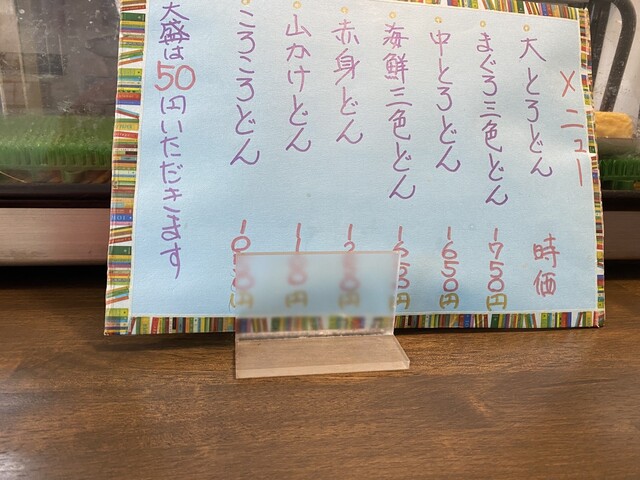 メニュー
大とろどん 時価
まぐろ三色どん 1750円
中とろどん 1650円
海鮮三色どん
赤身どん
山かけどん
ころころどん
大盛は50円いただきます